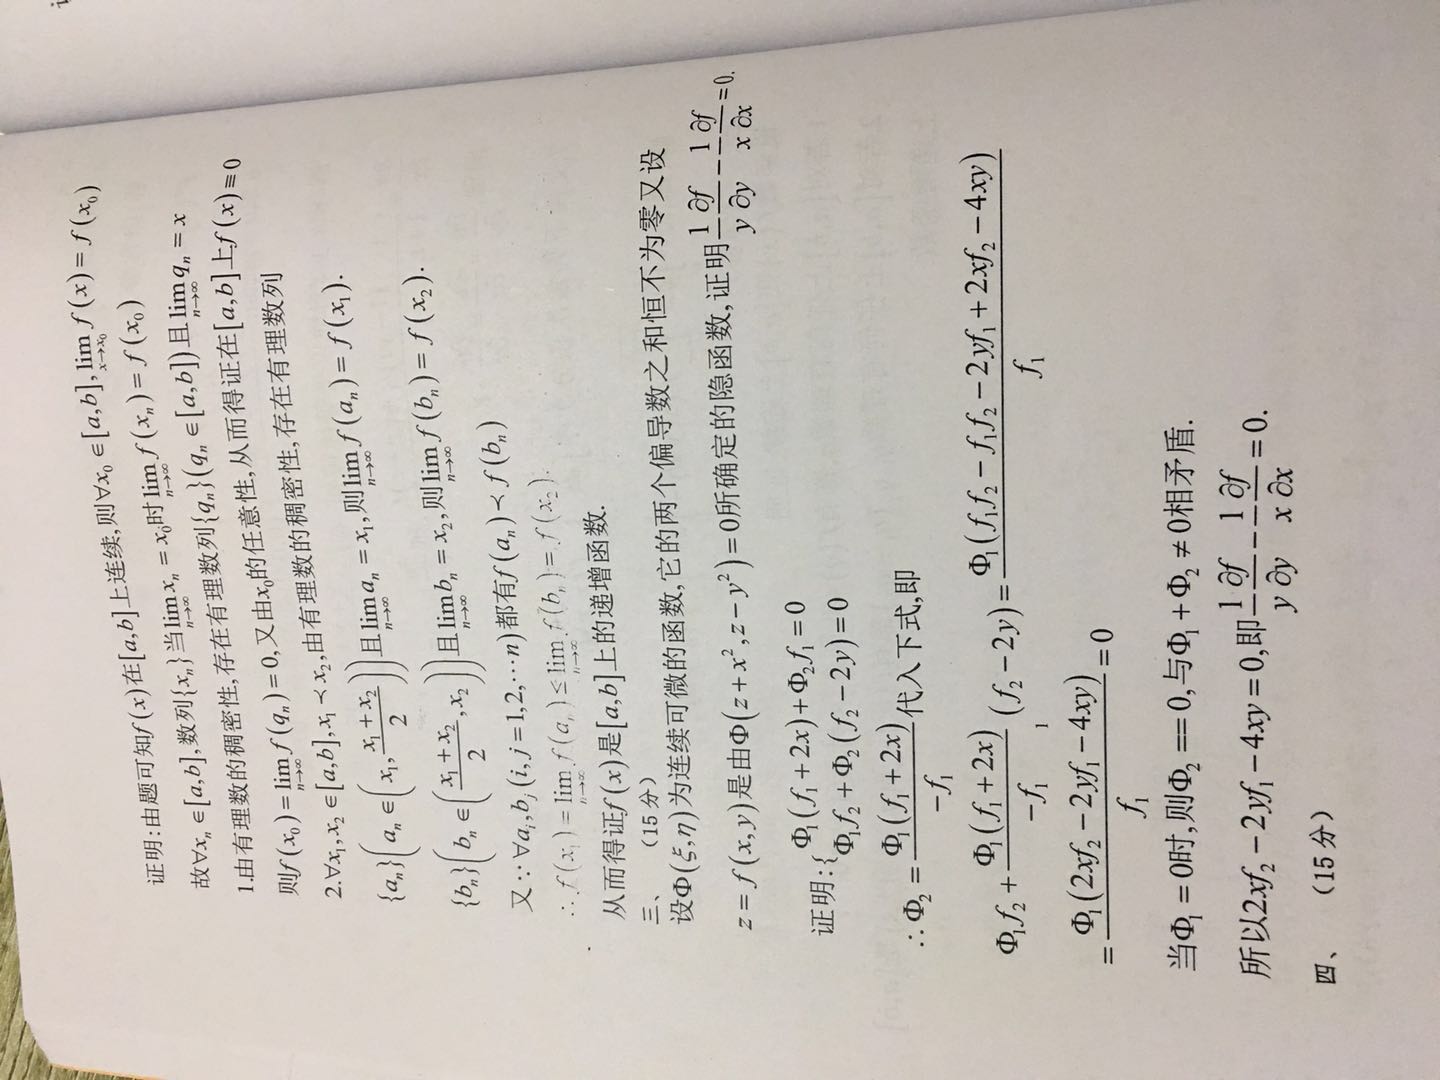 证明:由题可知f(x)在[a,b]上连续,则∀x₀∈[a,b],lim_{x→x₀} f(x)=f(x₀)
故∀xₙ∈[a,b],数列{xₙ}当lim_{n→∞} xₙ=x₀时lim_{n→∞} f(xₙ)=f(x₀)
1.由有理数的稠密性,存在有理数列{qₙ}(qₙ∈[a,b])且lim_{n→∞} qₙ=x
则f(x₀)=lim_{n→∞} f(qₙ)=0,又由x₀的任意性,从而得证在[a,b]上f(x)≡0
2.∀x₁,x₂∈[a,b],x₁≺x₂,由有理数的稠密性,存在有理数列
{aₙ}(aₙ∈(x₁,(x₁+x₂)/2))且lim_{n→∞} aₙ=x₁,则lim_{n→∞} f(aₙ)=f(x₁).
{bₙ}(bₙ∈((x₁+x₂)/2,x₂))且lim_{n→∞} bₙ=x₂,则lim_{n→∞} f(bₙ)=f(x₂).
又∵∀aᵢ,bⱼ(i,j=1,2,⋯n)都有f(aₙ)≺f(bₙ)
∴f(x₁)=lim_{n→∞} f(aₙ)≤lim_{n→∞} f(bₙ)=f(x₂).
从而得证f(x)是[a,b]上的递增函数.
三、(15分)
设Φ(ξ,η)为连续可微的函数,它的两个偏导数之和恒不为零又设
z=f(x,y)是由Φ(z+x²,z−y²)=0所确定的隐函数,证明1/y ∂f/∂y − 1/x ∂f/∂x=0.
证明:{Φ₁(f₁+2x)+Φ₂f₁=0
Φ₁f₂+Φ₂(f₂−2y)=0
∴Φ₂=Φ₁(f₁+2x)/−f₁代入下式,即
Φ₁f₂+Φ₁(f₁+2x)/−f₁ (f₂−2y)=Φ₁(f₁f₂−f₁f₂−2yf₁+2xf₂−4xy)/f₁
=Φ₁(2xf₂−2yf₁−4xy)/f₁=0
当Φ₁=0时,则Φ₂==0,与Φ₁+Φ₂≠0相矛盾.
所以2xf₂−2yf₁−4xy=0,即1/y ∂f/∂y − 1/x ∂f/∂x=0.
四、(15分)